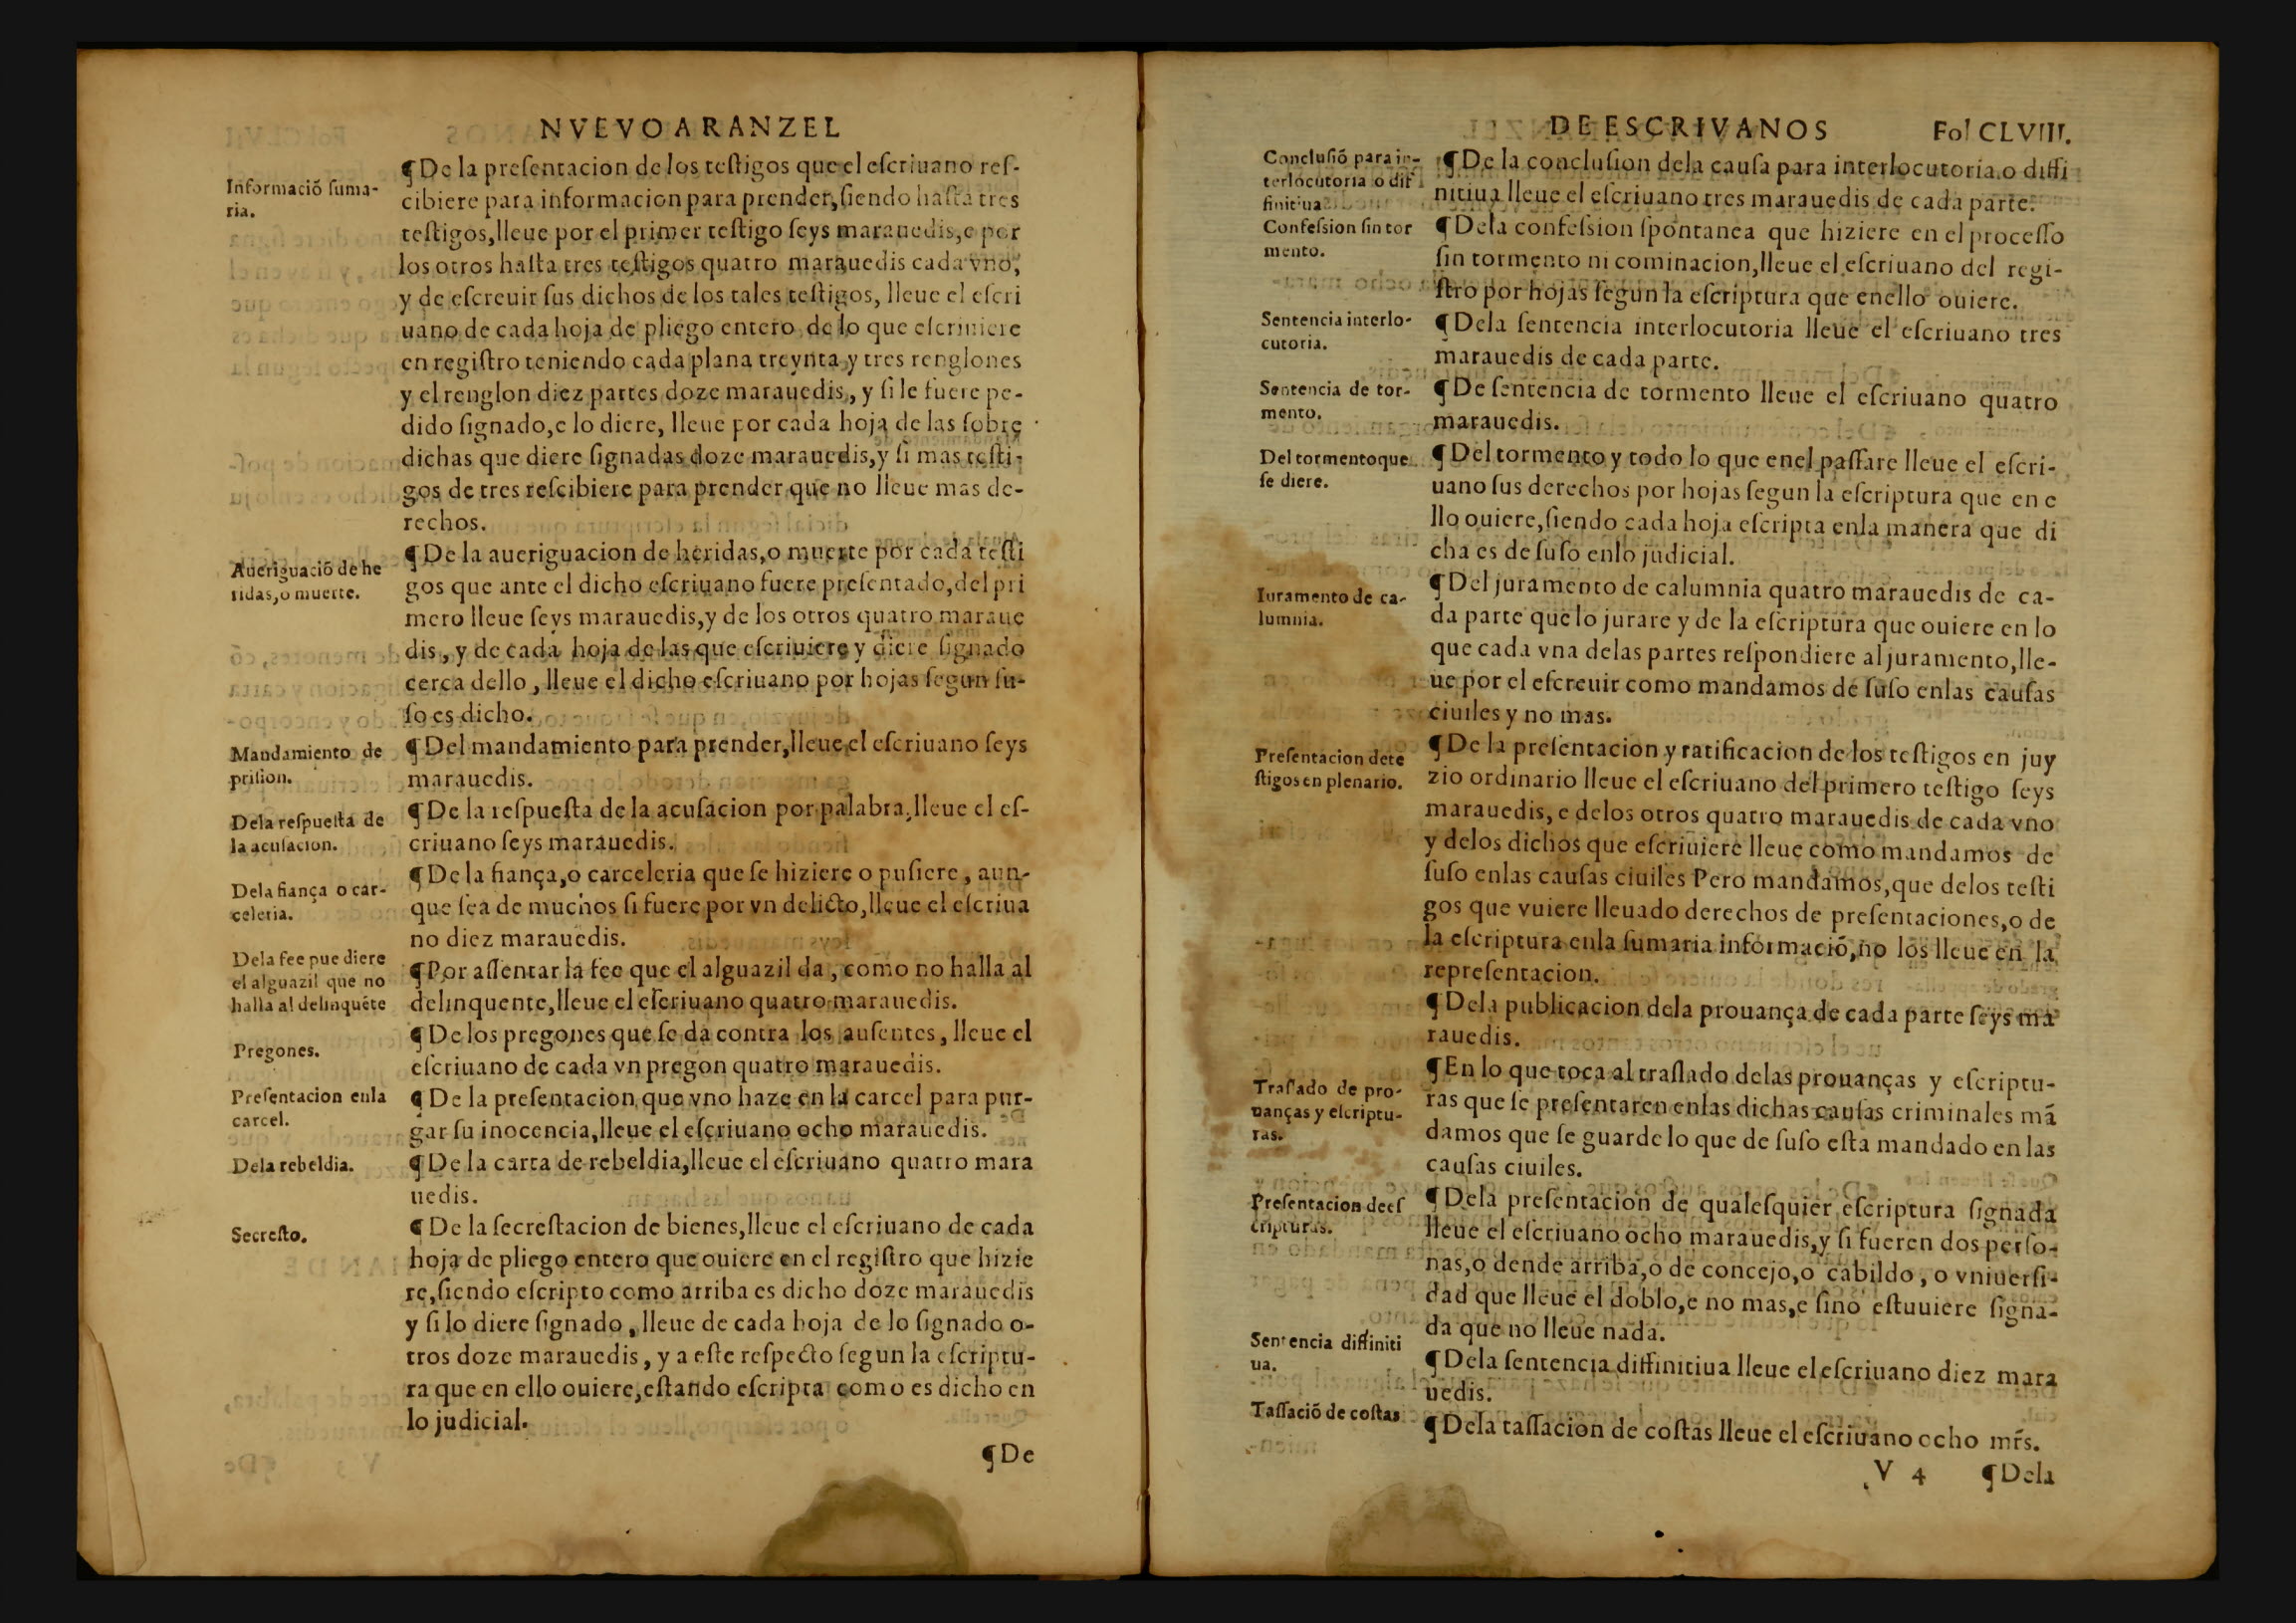 NVEVO ARANZEL
Informació ſuma-
ria.
¶De la preſentacion de los teſtigos que el eſcriuano reſ-
cibiere para informacion para prender, ſiendo haſta tres
teſtigos, lleue por el primer teſtigo ſeys marauedis, e por
los otros haſta tres teſtigos quatro marauedis cada vno,
y de eſcreuir ſus dichos de los tales teſtigos, lleue el eſcri
uano de cada hoja de pliego entero de lo que eſcriuiere
en regiſtro teniendo cada plana treynta y tres renglones
y el renglon diez partes doze marauedis, y ſi le fuere pe-
dido ſignado, e lo diere, lleue por cada hoja de las ſobre
dichas que diere ſignadas doze marauedis, y ſi mas teſti-
gos de tres reſcibiere para prender que no lleue mas de-
rechos.
Aueriguació de he
ridas, o muerte.
¶De la aueriguacion de heridas, o muerte por cada teſti
gos que ante el dicho eſcriuano fuere preſentado, del pri
mero lleue ſeys marauedis, y de los otros quatro maraue
dis, y de cada hoja de las que eſcriuiere y diere ſignado
cerca dello, lleue el dicho eſcriuano por hojas ſegun ſu-
ſo es dicho.
Mandamiento de
priſion.
¶Del mandamiento para prender, lleue el eſcriuano ſeys
marauedis.
Dela reſpueſta de
la acuſacion.
¶De la reſpueſta de la acuſacion por palabra, lleue el eſ-
criuano ſeys marauedis.
Dela fiança o car-
celeria.
¶De la fiança, o carceleria que ſe hiziere o puſiere, aun-
que ſea de muchos ſi fuere por vn delicto, lleue el eſcriua
no diez marauedis.
Dela fee pue diere
el alguazil que no
halla al delinquéte
¶Por aſſentar la fee que el alguazil da, como no halla al
delinquente, lleue el eſcriuano quatro marauedis.
Pregones.
¶De los pregones que ſe da contra los auſentes, lleue el
eſcriuano de cada vn pregon quatro marauedis.
Preſentacion enla
carcel.
¶De la preſentacion que vno haze en la carcel para pur-
gar ſu inocencia, lleue el eſcriuano ocho marauedis.
Dela rebeldia.
¶De la carta de rebeldia, lleue el eſcriuano quatro mara
uedis.
Secreſto.
¶De la ſecreſtacion de bienes, lleue el eſcriuano de cada
hoja de pliego entero que ouiere en el regiſtro que hizie
re, ſiendo eſcripto como arriba es dicho doze marauedis
y ſi lo diere ſignado, lleue de cada hoja de lo ſignado o-
tros doze marauedis, y a eſte reſpecto ſegun la eſcriptu-
ra que en ello ouiere, eſtando eſcripta como es dicho en
lo judicial.
¶De
DE ESCRIVANOS Fol CLVIII.
Concluſió para in-
terlocutoria o dif
finitiua.
¶De la concluſion dela cauſa para interlocutoria, o diffi
nitiua lleue el eſcriuano tres marauedis de cada parte.
Confeſsion ſin tor
mento.
¶Dela confeſsion ſpontanea que hiziere en el proceſſo
ſin tormento ni cominacion, lleue el eſcriuano del regi-
ſtro por hojas ſegun la eſcriptura que enello ouiere.
Sentencia interlo-
cutoria.
¶Dela ſentencia interlocutoria lleue el eſcriuano tres
marauedis de cada parte.
Sentencia de tor-
mento.
¶De ſentencia de tormento lleue el eſcriuano quatro
marauedis.
Del tormento que
ſe diere.
¶Del tormento y todo lo que enel paſſare lleue el eſcri-
uano ſus derechos por hojas ſegun la eſcriptura que en e
llo ouiere, ſiendo cada hoja eſcripta enla manera que di
cha es de ſuſo enlo judicial.
Iuramento de ca-
lumnia.
¶Del juramento de calumnia quatro marauedis de ca-
da parte que lo jurare y de la eſcriptura que ouiere en lo
que cada vna delas partes reſpondiere al juramento, lle-
ue por el eſcreuir como mandamos de ſuſo enlas cauſas
ciuiles y no mas.
Preſentacion de te
ſtigos en plenario.
¶De la preſentacion y ratificacion de los teſtigos en juy
zio ordinario lleue el eſcriuano del primero teſtigo ſeys
marauedis, e delos otros quatro marauedis de cada vno
y delos dichos que eſcriuiere lleue como mandamos de
ſuſo enlas cauſas ciuiles Pero mandamos, que delos teſti
gos que vuiere lleuado derechos de preſentaciones, o de
la eſcriptura enla ſumaria informació, no los lleue en la
repreſentacion.
¶Dela publicacion dela prouança de cada parte ſeys ma
rauedis.
Traſlado de pro-
uanças y eſcriptu-
ras.
¶En lo que toca al traſlado delas prouanças y eſcriptu-
ras que ſe preſentaren enlas dichas cauſas criminales má
damos que ſe guarde lo que de ſuſo eſta mandado en las
cauſas ciuiles.
Preſentacion de eſ
cripturas.
¶Dela preſentacion de qualeſquier eſcriptura ſignada
lleue el eſcriuano ocho marauedis, y ſi fueren dos perſo-
nas, o dende arriba, o de concejo, o cabildo, o vniuerſi-
dad que lleue el doblo, e no mas, e ſino eſtuuiere ſigna-
da que no lleue nada.
Sentencia diffiniti
ua.
¶Dela ſentencia diffinitiua lleue el eſcriuano diez mara
uedis.
Taſſació de coſtas
¶Dela taſſacion de coſtas lleue el eſcriuano ocho mr̃s.
V 4 ¶Dela